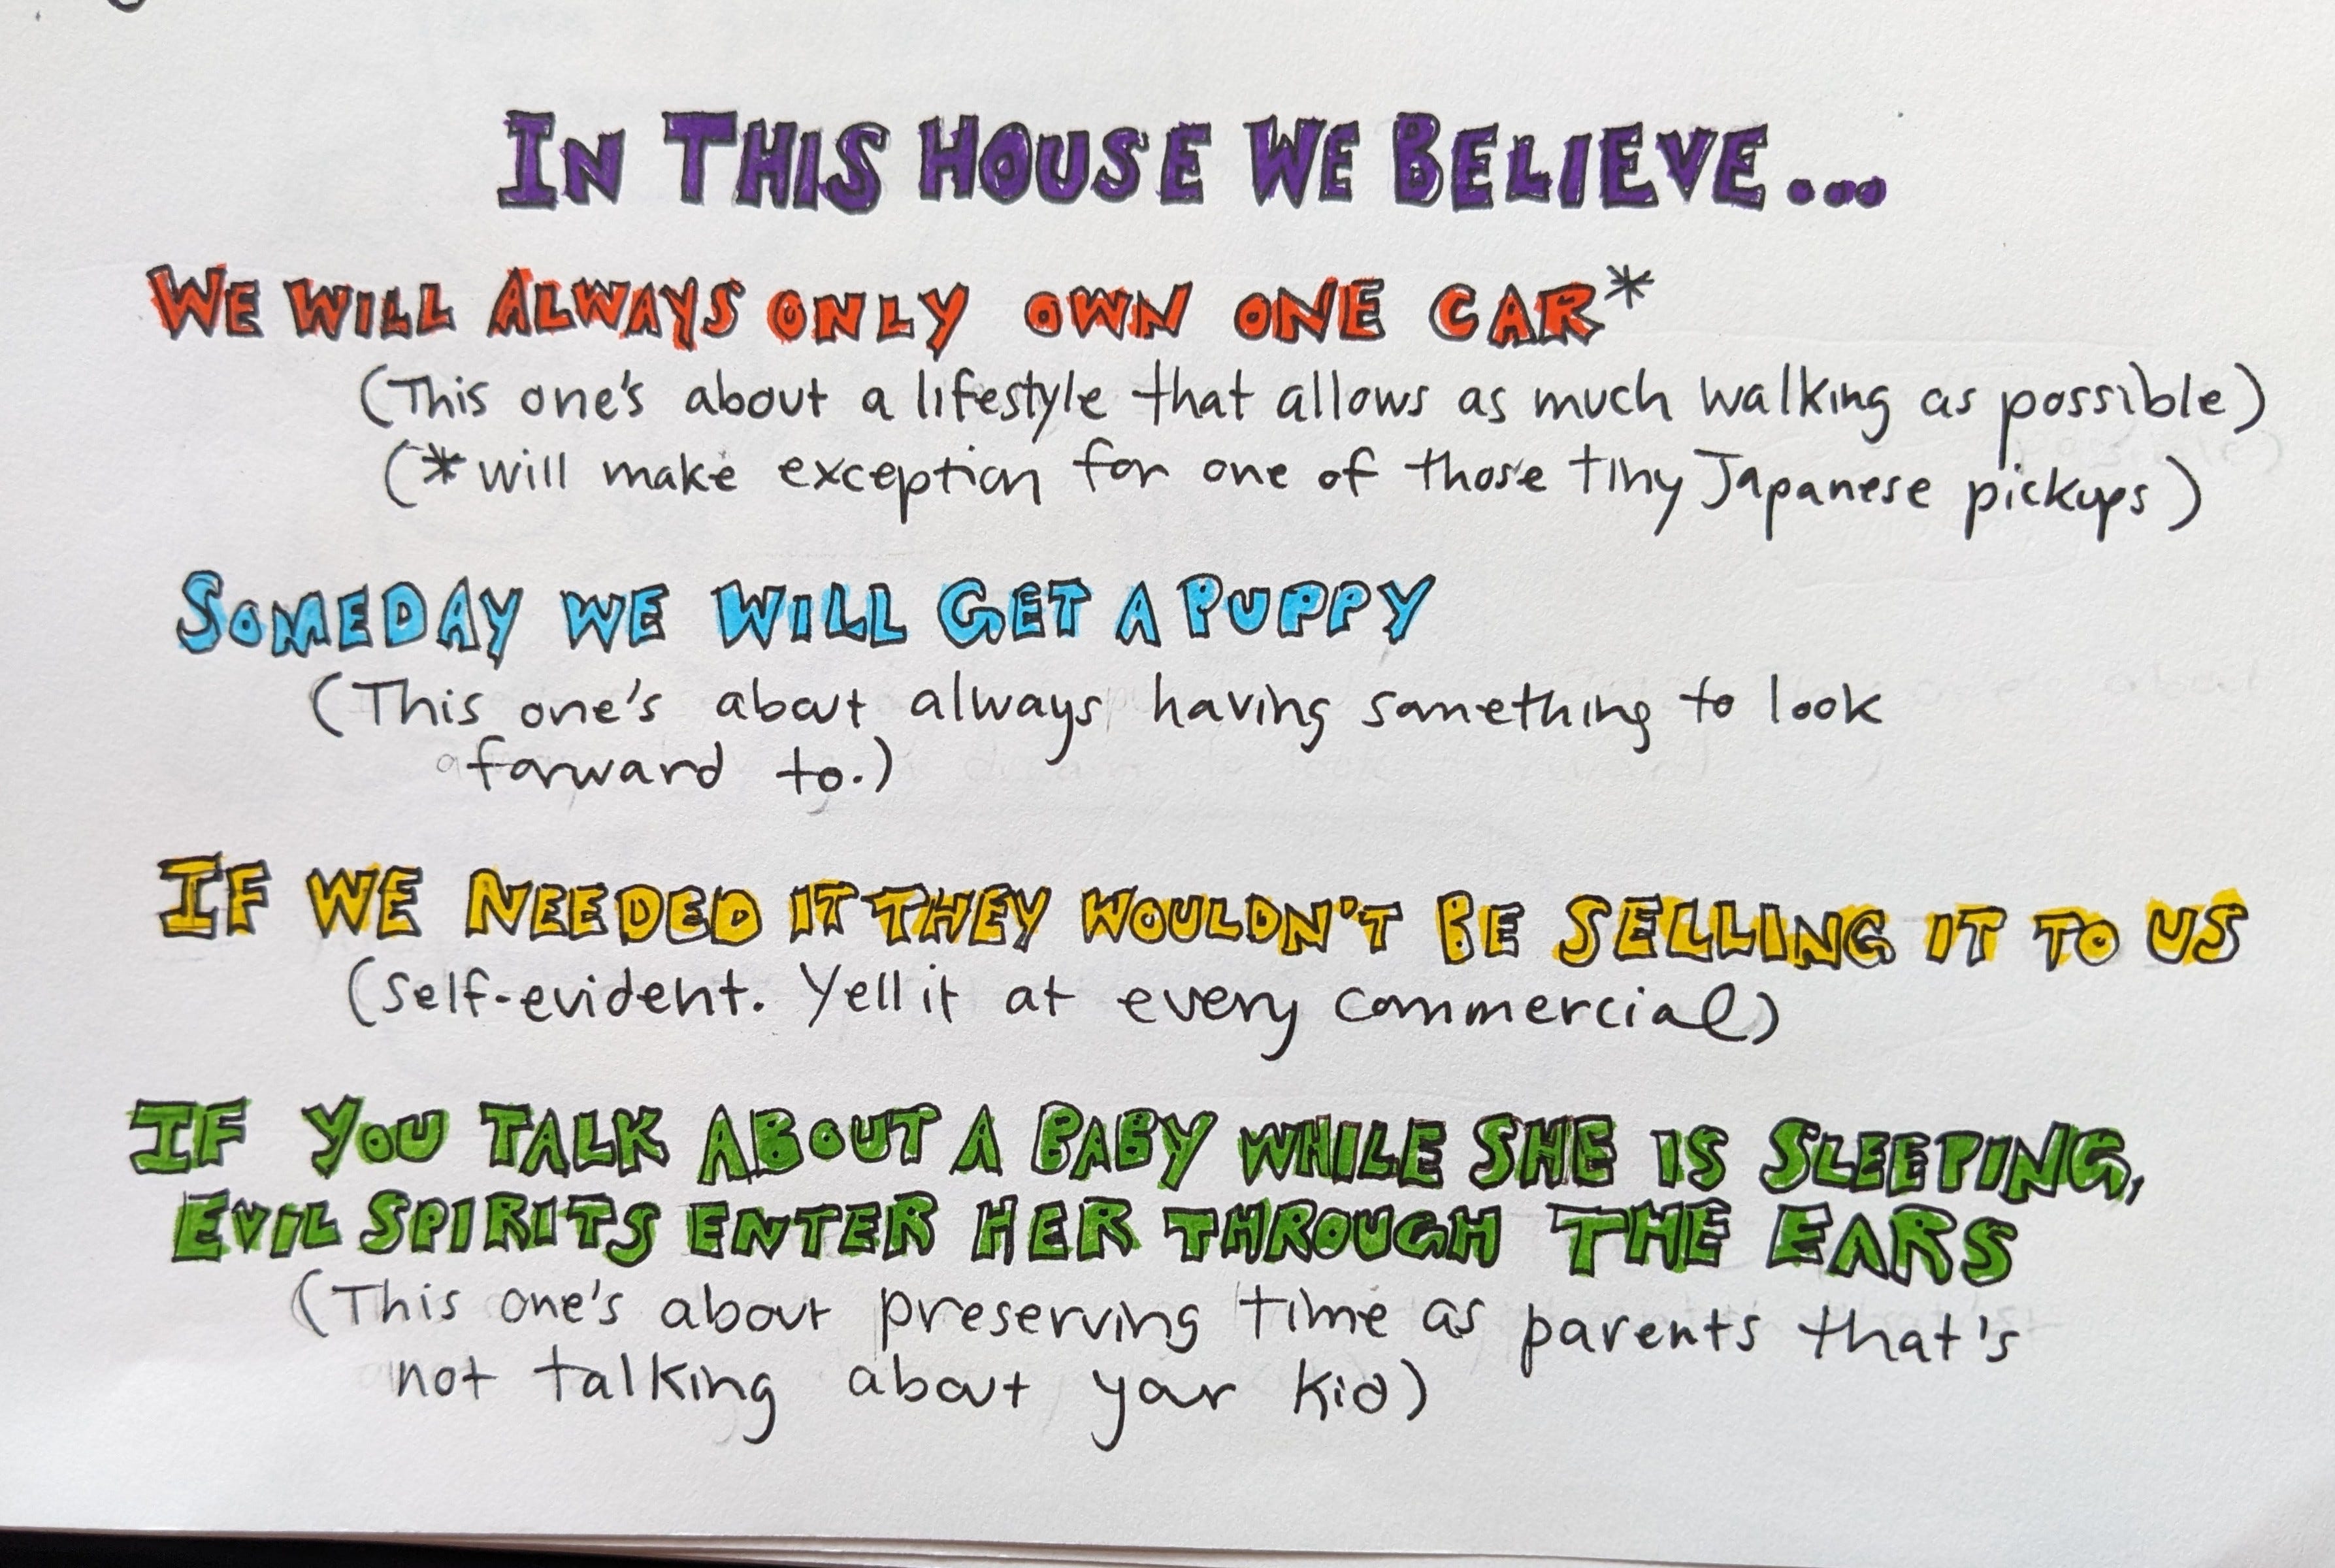 IN THIS HOUSE WE BELIEVE...
WE WILL ALWAYS ONLY OWN ONE CAR*
(This one's about a lifestyle that allows as much walking as possible)
(*will make exception for one of those tiny Japanese pickups)
SOMEDAY WE WILL GET A PUPPY
(This one's about always having something to look
forward to.)
IF WE NEEDED IT THEY WOULDN'T BE SELLING IT TO US
(Self-evident. Yell it at every commercial)
IF YOU TALK ABOUT A BABY WHILE SHE IS SLEEPING,
EVIL SPIRITS ENTER HER THROUGH THE EARS
(This one's about preserving time as parents that's
not talking about your kid)